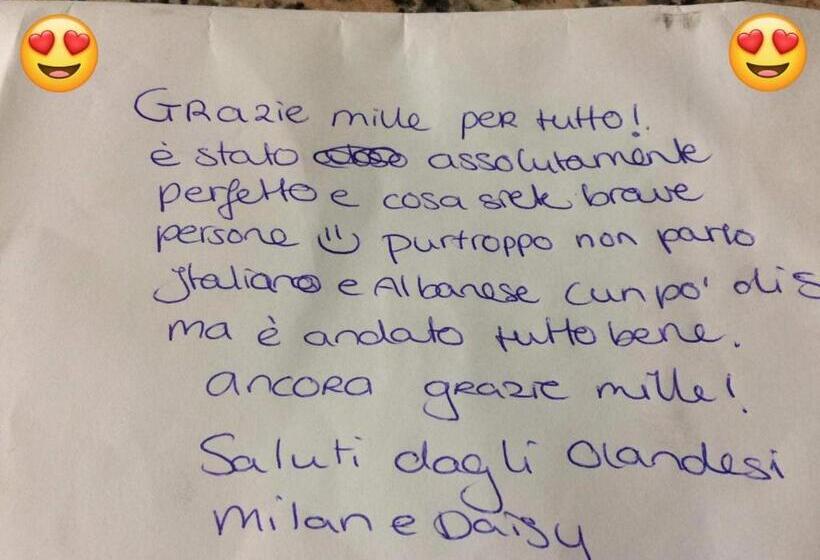 GRazie mille per tutto!
è stato assolutamente
perfetto e cosa siete brave
persone purtroppo non parlo
Italiano e Albanese (un po' di
ma è andato tutto bene.
ancora grazie mille!
Saluti dagli Olandesi
Milan e Daisy